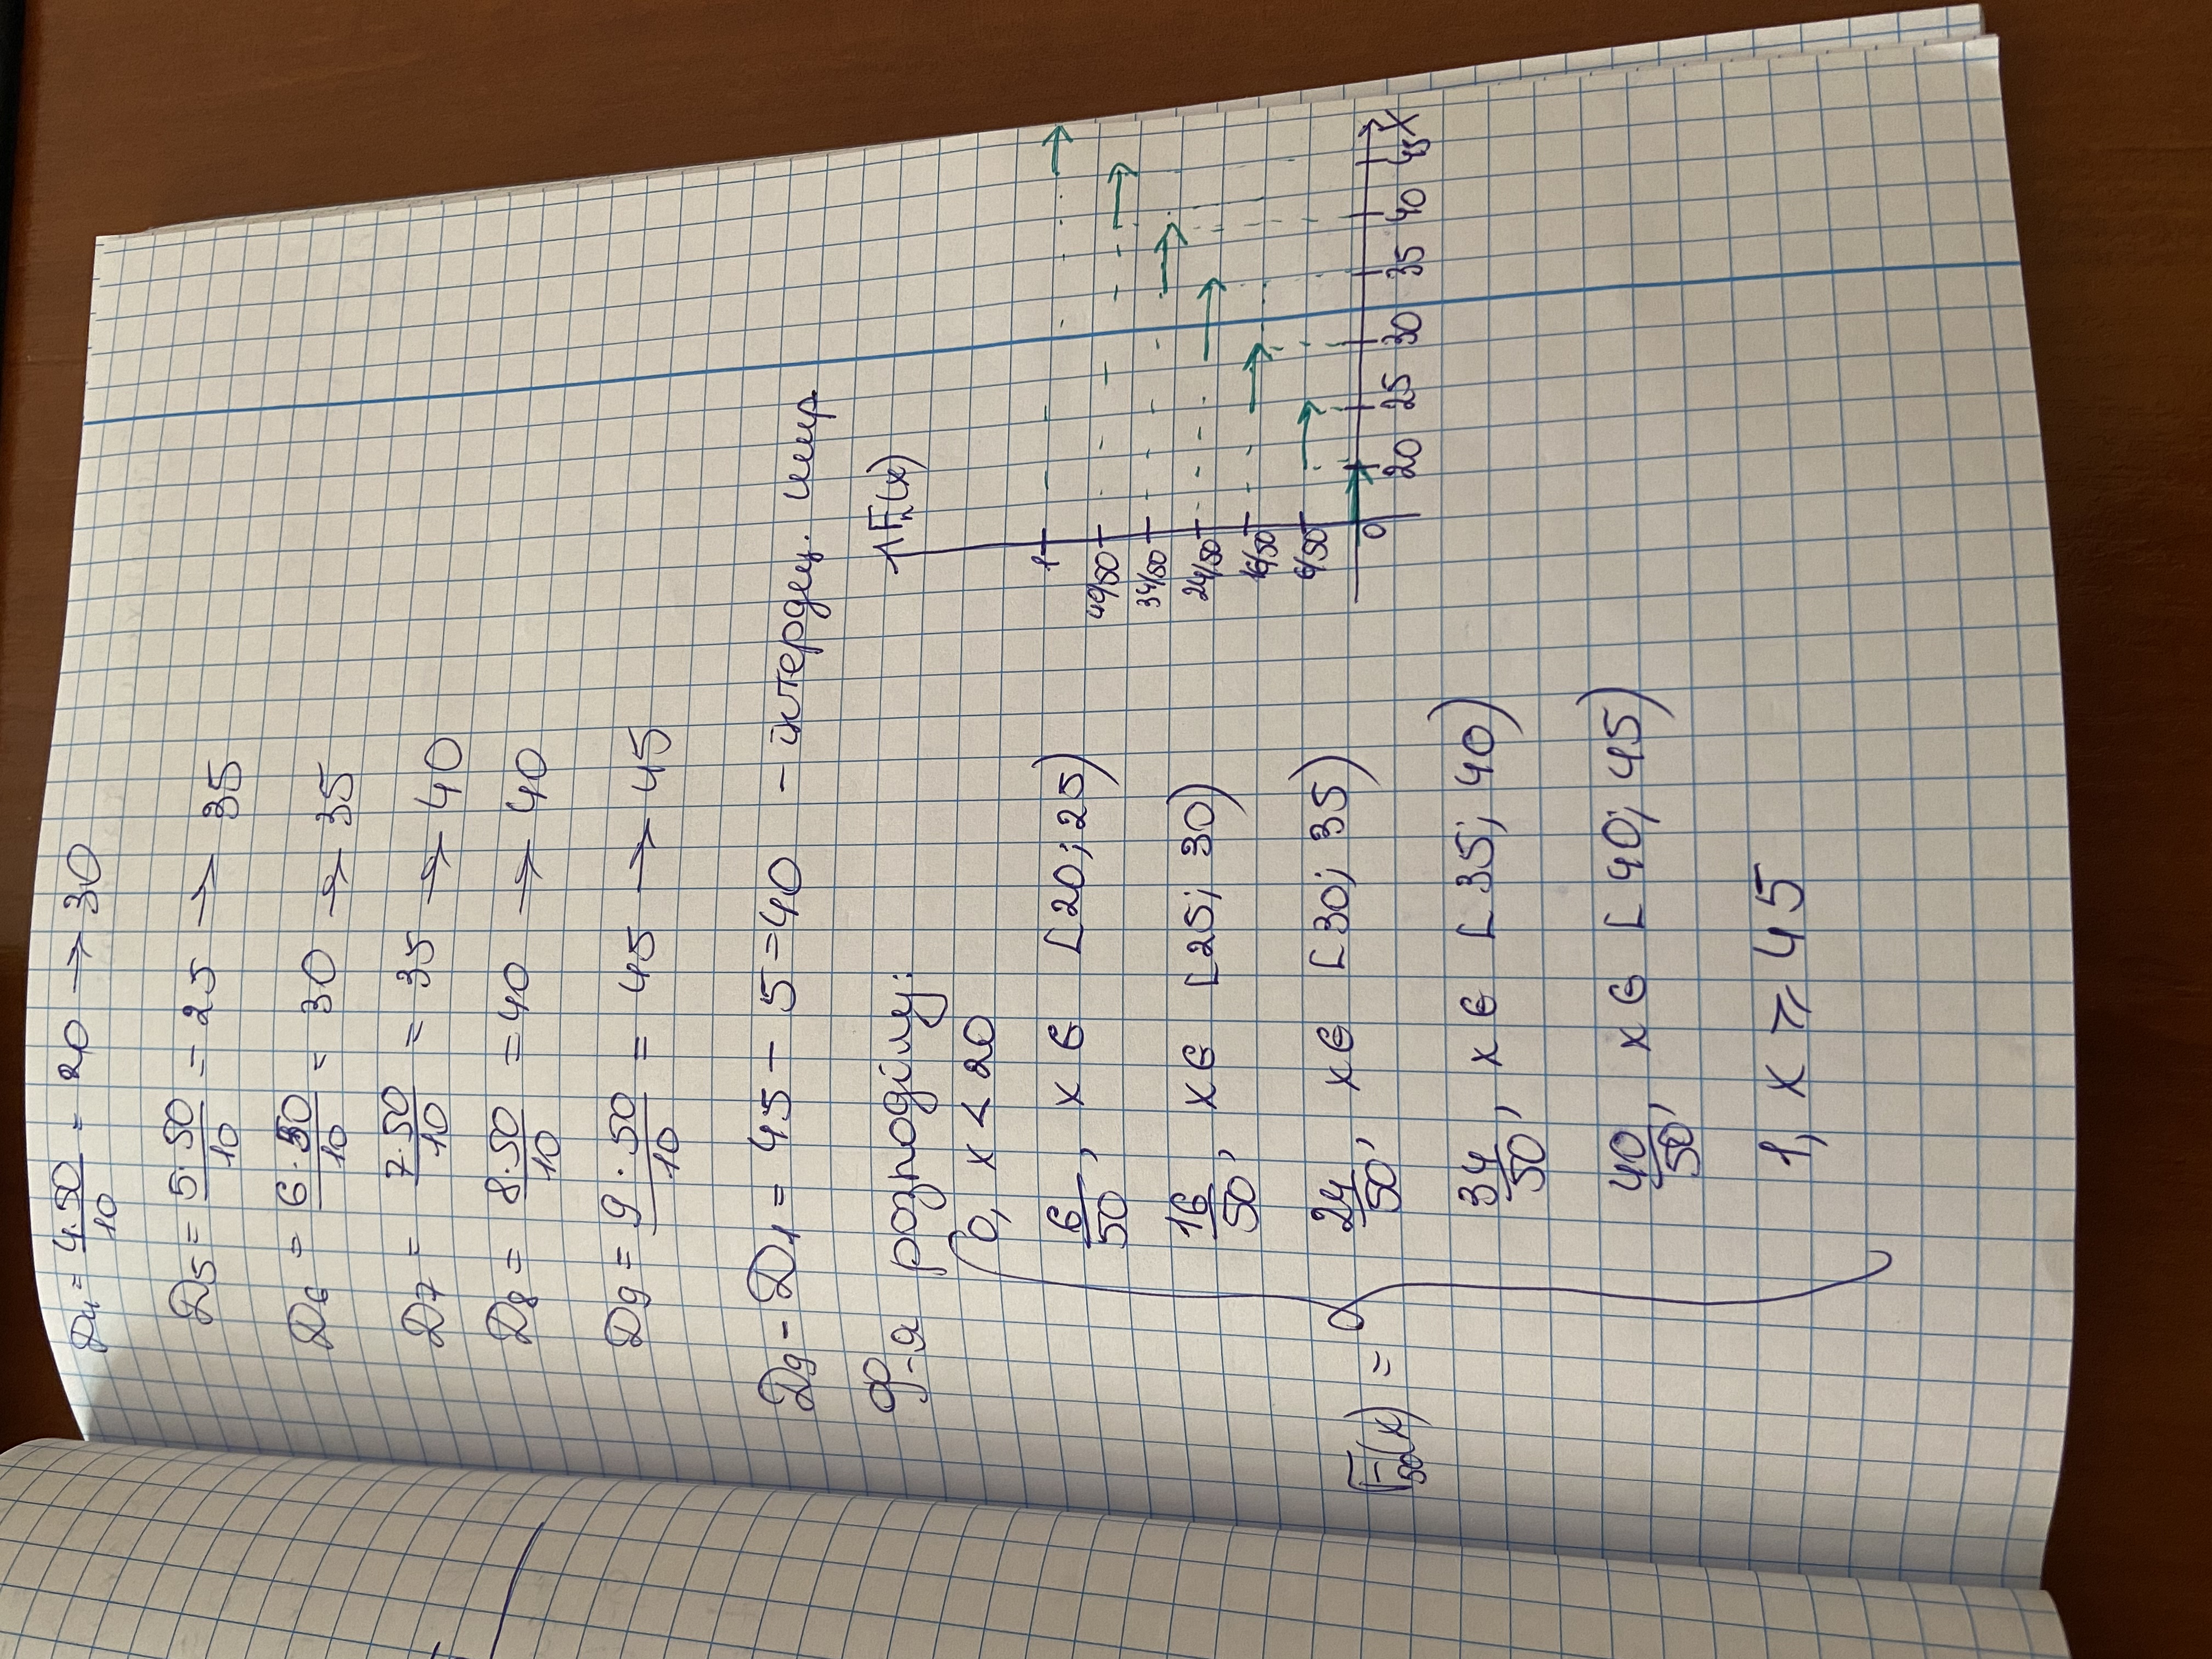 Д4 = 4·50/10 = 20 → 30
Д5 = 5·50/10 = 25 → 35
Д6 = 6·50/10 = 30 → 35
Д7 = 7·50/10 = 35 → 40
Д8 = 8·50/10 = 40 → 40
Д9 = 9·50/10 = 45 → 45
Д9 - Д1 = 45 - 5 = 40 - інтердец. шир.
Ф-я розподілу:
0, x < 20
6/50, x ∈ [20; 25)
16/50, x ∈ [25; 30)
24/50, x ∈ [30; 35)
F50(x) =
34/50, x ∈ [35; 40)
40/50, x ∈ [40; 45)
1, x ⩾ 45
Fn(x)
1
40/50
34/50
24/50
16/50
6/50
0 20 25 30 35 40 45 X